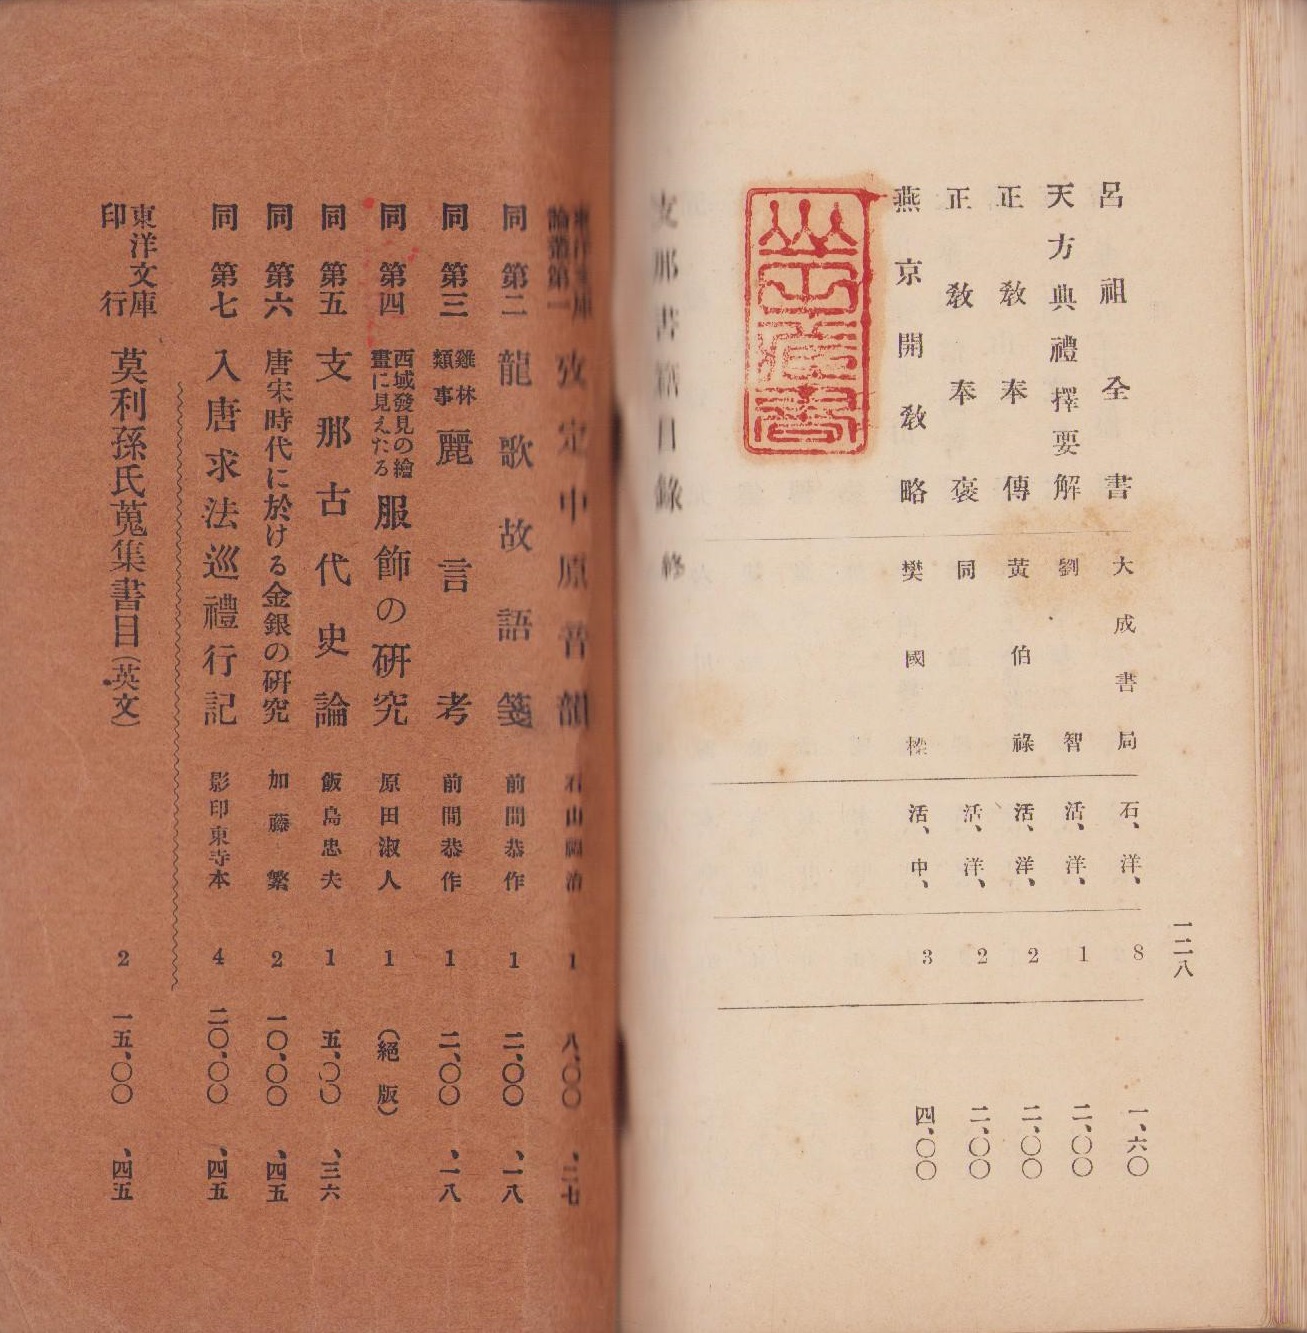 一二八
呂祖全書 大成書局 石、洋、 8 一、六〇
天方典禮擇要解 劉智 活、洋、 1 二、〇〇
正教奉傳 黄伯祿 活、洋、 2 二、〇〇
正教奉褒 同 活、洋、 2 二、〇〇
燕京開教略 樊國樑 活、中、 3 四、〇〇
支那書籍目錄 終
東洋文庫論叢第一 攷定中原音韻 石山福治 1 八、〇〇 、二七
同 第二 龍歌故語箋 前間恭作 1 二、〇〇 、一八
同 第三 雞林類事 麗言考 前間恭作 1 二、〇〇 、一八
同 第四 西域發見の繪畫に見えたる 服飾の研究 原田淑人 1 (絕版)
同 第五 支那古代史論 飯島忠夫 1 五、〇〇 、三六
同 第六 唐宋時代に於ける金銀の研究 加藤繁 2 一〇、〇〇 、四五
同 第七 入唐求法巡禮行記 影印東寺本 4 二〇、〇〇 、四五
東洋文庫印行 莫利孫氏蒐集書目(英文) 2 一五、〇〇 、四五